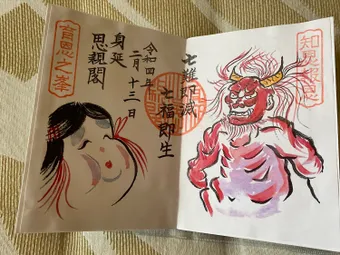 知恩報恩
七難即滅
七福即生
令和四年
二月十三日
身延
思親閣
育恩之峯